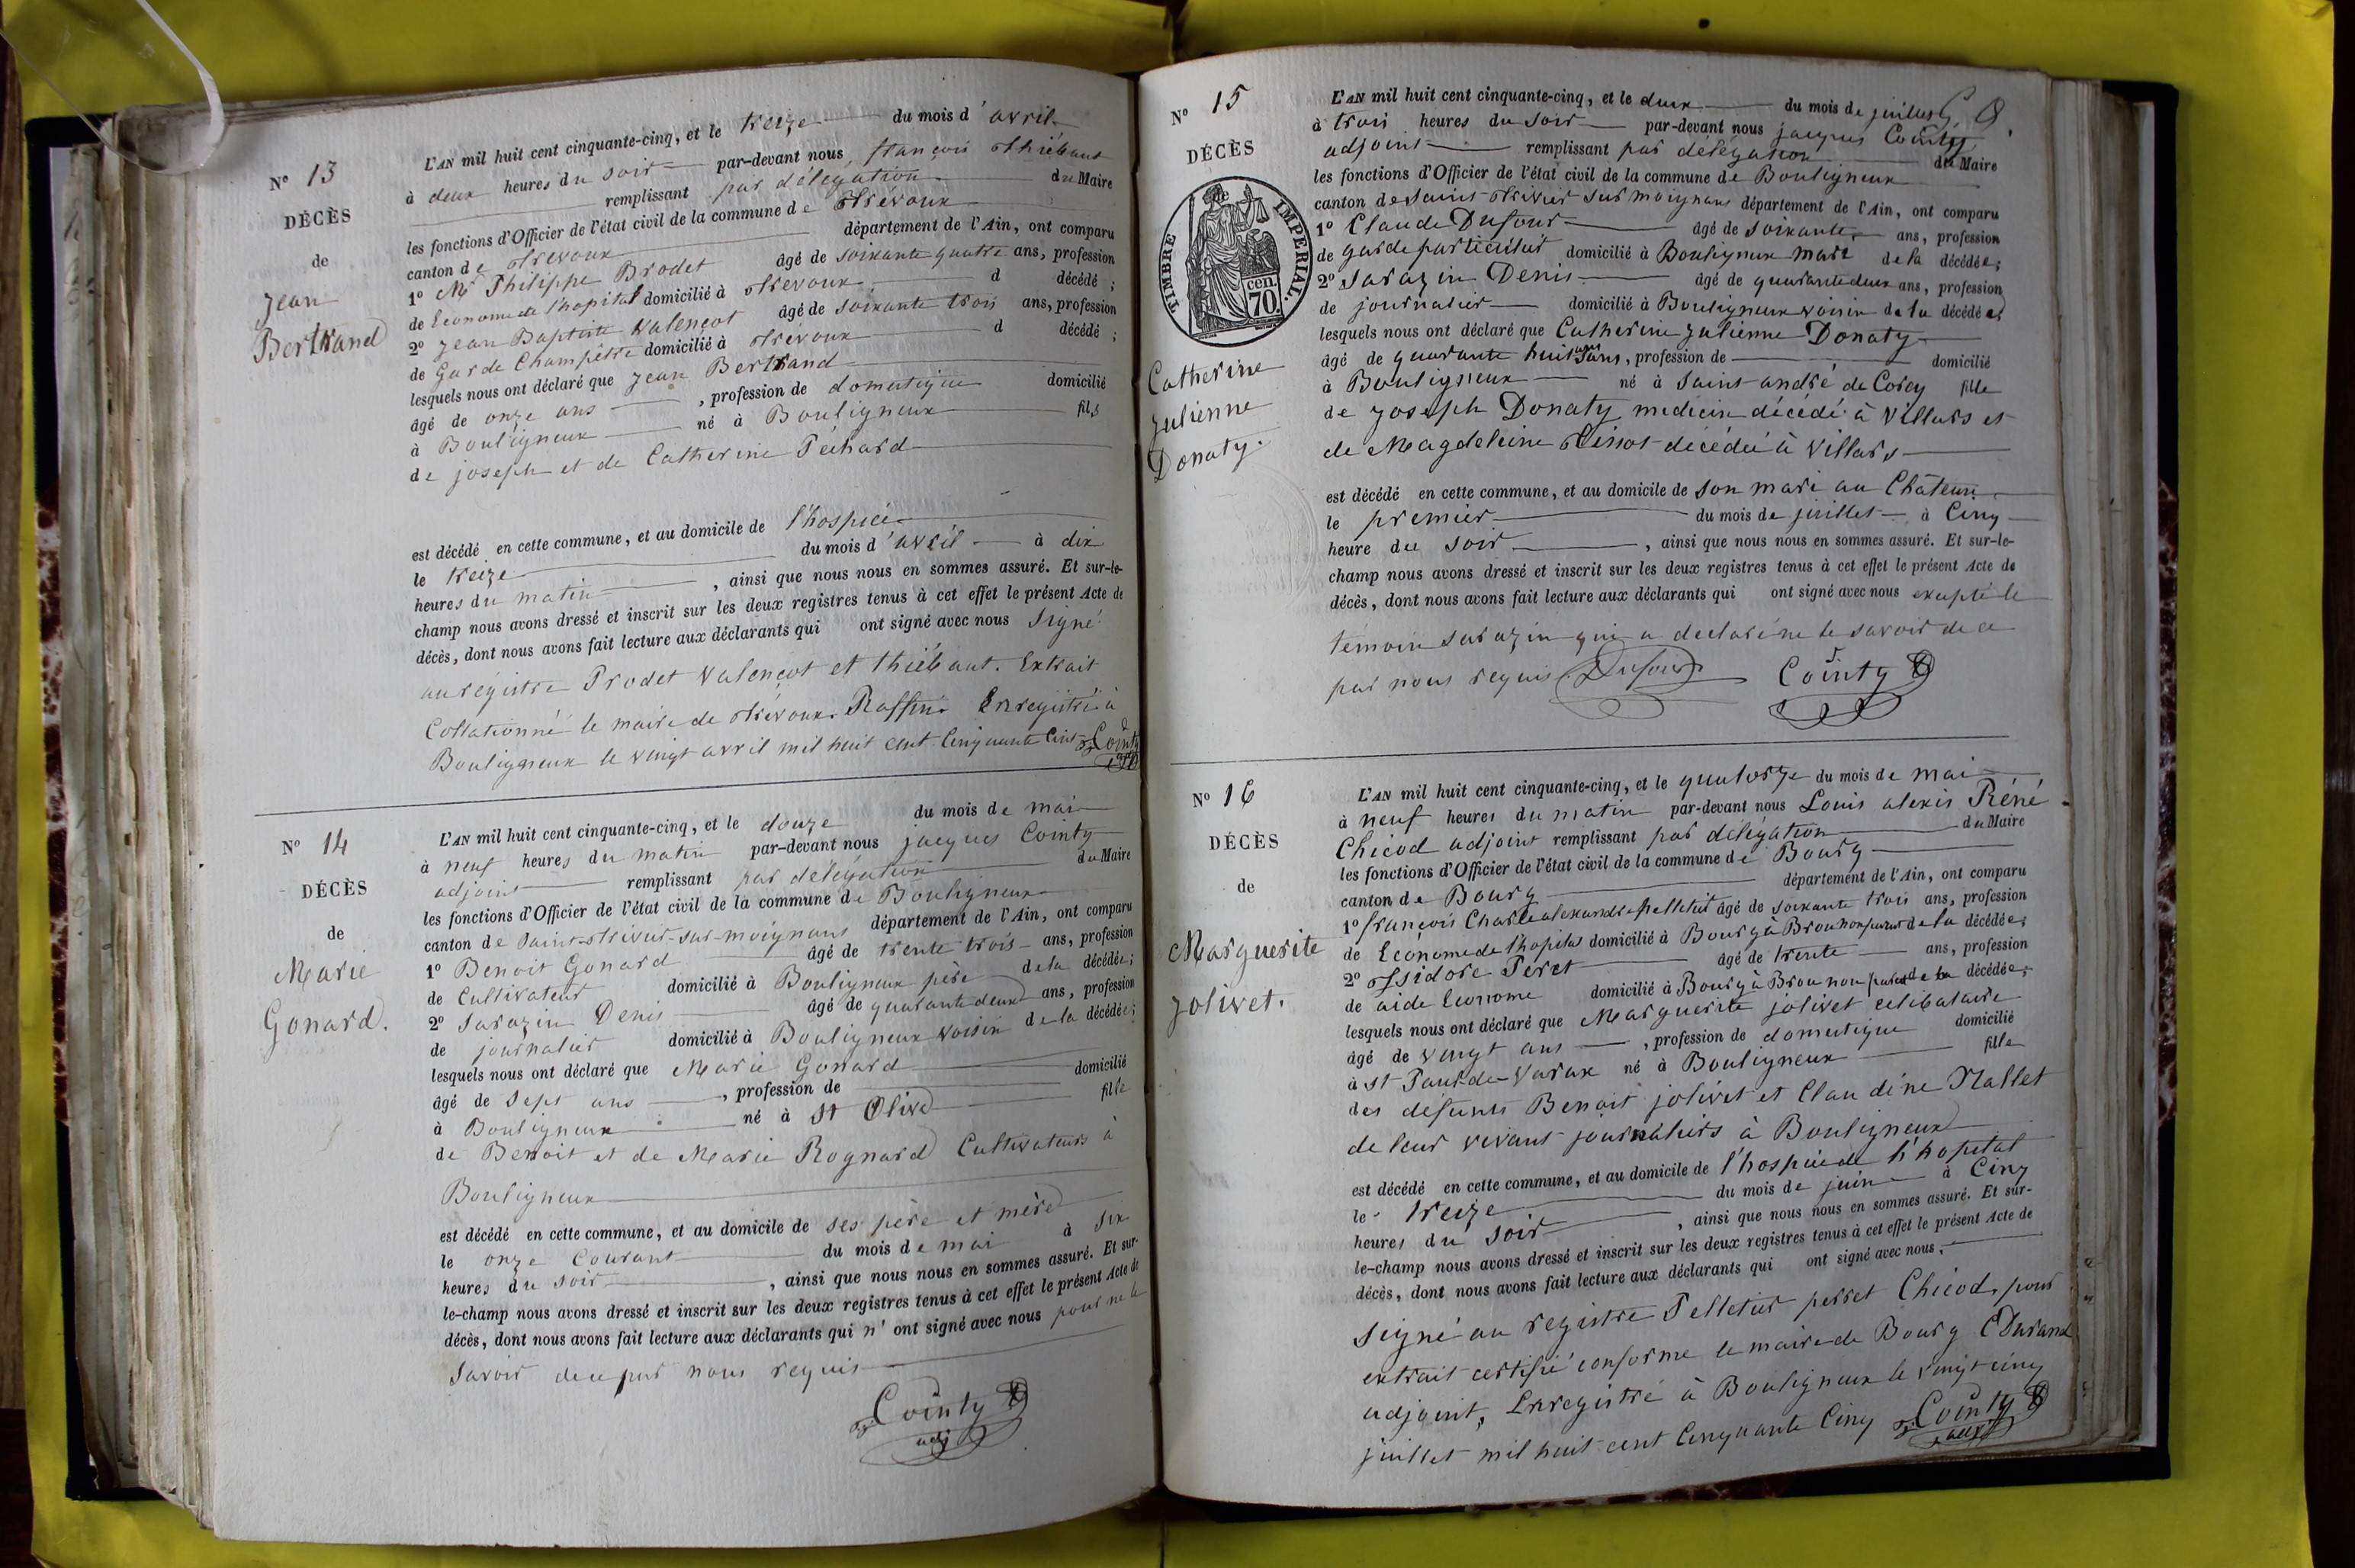 N° 13
DÉCÈS
de
Jean
Bertrand
L'AN mil huit cent cinquante-cinq, et le treize du mois d'avril
à deux heures du soir par-devant nous, françois thiébaut
remplissant par délégation du Maire
les fonctions d'Officier de l'état civil de la commune de trévoux
canton de trévoux département de l'Ain, ont comparu
1° Mr Philippe Brodet âgé de soixante quatre ans, profession
de Econome de l'hopital domicilié à trévoux d décédé ;
2° Jean Baptiste Valençot âgé de soixante trois ans, profession
de Garde Champêtre domicilié à trévoux d décédé ;
lesquels nous ont déclaré que Jean Bertrand
âgé de onze ans, profession de domestique domicilié
à Bouligneux né à Bouligneux fils
de joseph et de Catherine Péchard
est décédé en cette commune, et au domicile de l'hospice
le treize du mois d'avril à dix
heures du matin, ainsi que nous nous en sommes assuré. Et sur-le-
champ nous avons dressé et inscrit sur les deux registres tenus à cet effet le présent Acte de
décès, dont nous avons fait lecture aux déclarants qui ont signé avec nous Signé
au régistre Prodet Valençot et thiébaut. Extrait
Collationné le maire de trévoux. Raffin. Enregistré à
Bouligneux le vingt avril mil huit cent Cinquante Cinq Cointy
adj
N° 14
DÉCÈS
de
Marie
Gonard.
L'AN mil huit cent cinquante-cinq, et le douze du mois de mai
à neuf heures du matin par-devant nous jacques Cointy
adjoint remplissant par délégation du Maire
les fonctions d'Officier de l'état civil de la commune de Bouligneux
canton de Saint-trivier-sur-moignans département de l'Ain, ont comparu
1° Benoit Gonard âgé de trente trois ans, profession
de Cultivateur domicilié à Bouligneux père de la décédée ;
2° Sarazin Denis âgé de quarante deux ans, profession
de journalier domicilié à Bouligneux voisin de la décédée ;
lesquels nous ont déclaré que Marie Gonard
âgé de sept ans, profession de domicilié
à Bouligneux né à St Olive fille
de Benoit et de Marie Rognard Cultivateurs à
Bouligneux
est décédé en cette commune, et au domicile de ses père et mère
le onze Courant du mois de mai à six
heures du soir, ainsi que nous nous en sommes assuré. Et sur-
le-champ nous avons dressé et inscrit sur les deux registres tenus à cet effet le présent Acte de
décès, dont nous avons fait lecture aux déclarants qui n'ont signé avec nous pour ne le
savoir de ce par nous requis
Cointy
adj
N° 15
DÉCÈS
TIMBRE IMPERIAL.
cen.
70.
Catherine
Julienne
Donaty.
L'AN mil huit cent cinquante-cinq, et le deux du mois de juillet
à trois heures du soir par-devant nous jacques Cointy
adjoint remplissant par délégation du Maire
les fonctions d'Officier de l'état civil de la commune de Bouligneux
canton de Saint-trivier sur moignans département de l'Ain, ont comparu
1° Claude Dufour âgé de soixante ans, profession
de garde particulier domicilié à Bouligneux mari de la décédée ;
2° Sarazin Denis âgé de quarante deux ans, profession
de journalier domicilié à Bouligneux voisin de la décédée ;
lesquels nous ont déclaré que Catherine Julienne Donaty
âgé de quarante huit ans, profession de domicilié
à Bouligneux né à Saint andré de Corcy fille
de Joseph Donaty médecin décédé à Villars et
de Magdeleine tissot décédée à Villars
est décédé en cette commune, et au domicile de son mari au Château
le premier du mois de juillet à Cinq
heure du soir, ainsi que nous nous en sommes assuré. Et sur-le-
champ nous avons dressé et inscrit sur les deux registres tenus à cet effet le présent Acte de
décès, dont nous avons fait lecture aux déclarants qui ont signé avec nous excepté le
témoin Sarazin qui a déclaré ne le savoir de ce
par nous requis Dufour Cointy
N° 16
DÉCÈS
de
Marguerite
jolivet.
L'AN mil huit cent cinquante-cinq, et le quatorze du mois de mai
à neuf heures du matin par-devant nous Louis alexis Réné
Chicod adjoint remplissant par délégation du Maire
les fonctions d'Officier de l'état civil de la commune de Bourg
canton de Bourg département de l'Ain, ont comparu
1° françois Charle alexandre pelletier âgé de soixante trois ans, profession
de Econome de l'hopital domicilié à Bourg à Brou non parent de la décédée ;
2° Isidore Peret âgé de trente ans, profession
de aide Econome domicilié à Bourg à Brou non parent de la décédée ;
lesquels nous ont déclaré que Marguerite jolivet célibataire
âgé de vingt ans, profession de domestique domicilié
à St Paul-de-Varax né à Bouligneux fille
des défunts Benoit jolivet et Claudine Nallet
de leur vivant journaliers à Bouligneux
est décédé en cette commune, et au domicile de l'hospice de l'hopital
le treize du mois de juin à Cinq
heures du soir, ainsi que nous nous en sommes assuré. Et sur-
le-champ nous avons dressé et inscrit sur les deux registres tenus à cet effet le présent Acte de
décès, dont nous avons fait lecture aux déclarants qui ont signé avec nous,
signé au registre Pelletier perret Chicod, pour
extrait certifié conforme le maire de Bourg CDurand
adjoint, Enregistré à Bouligneux le vingt cinq
juillet mil huit cent Cinquante Cinq Cointy
adj